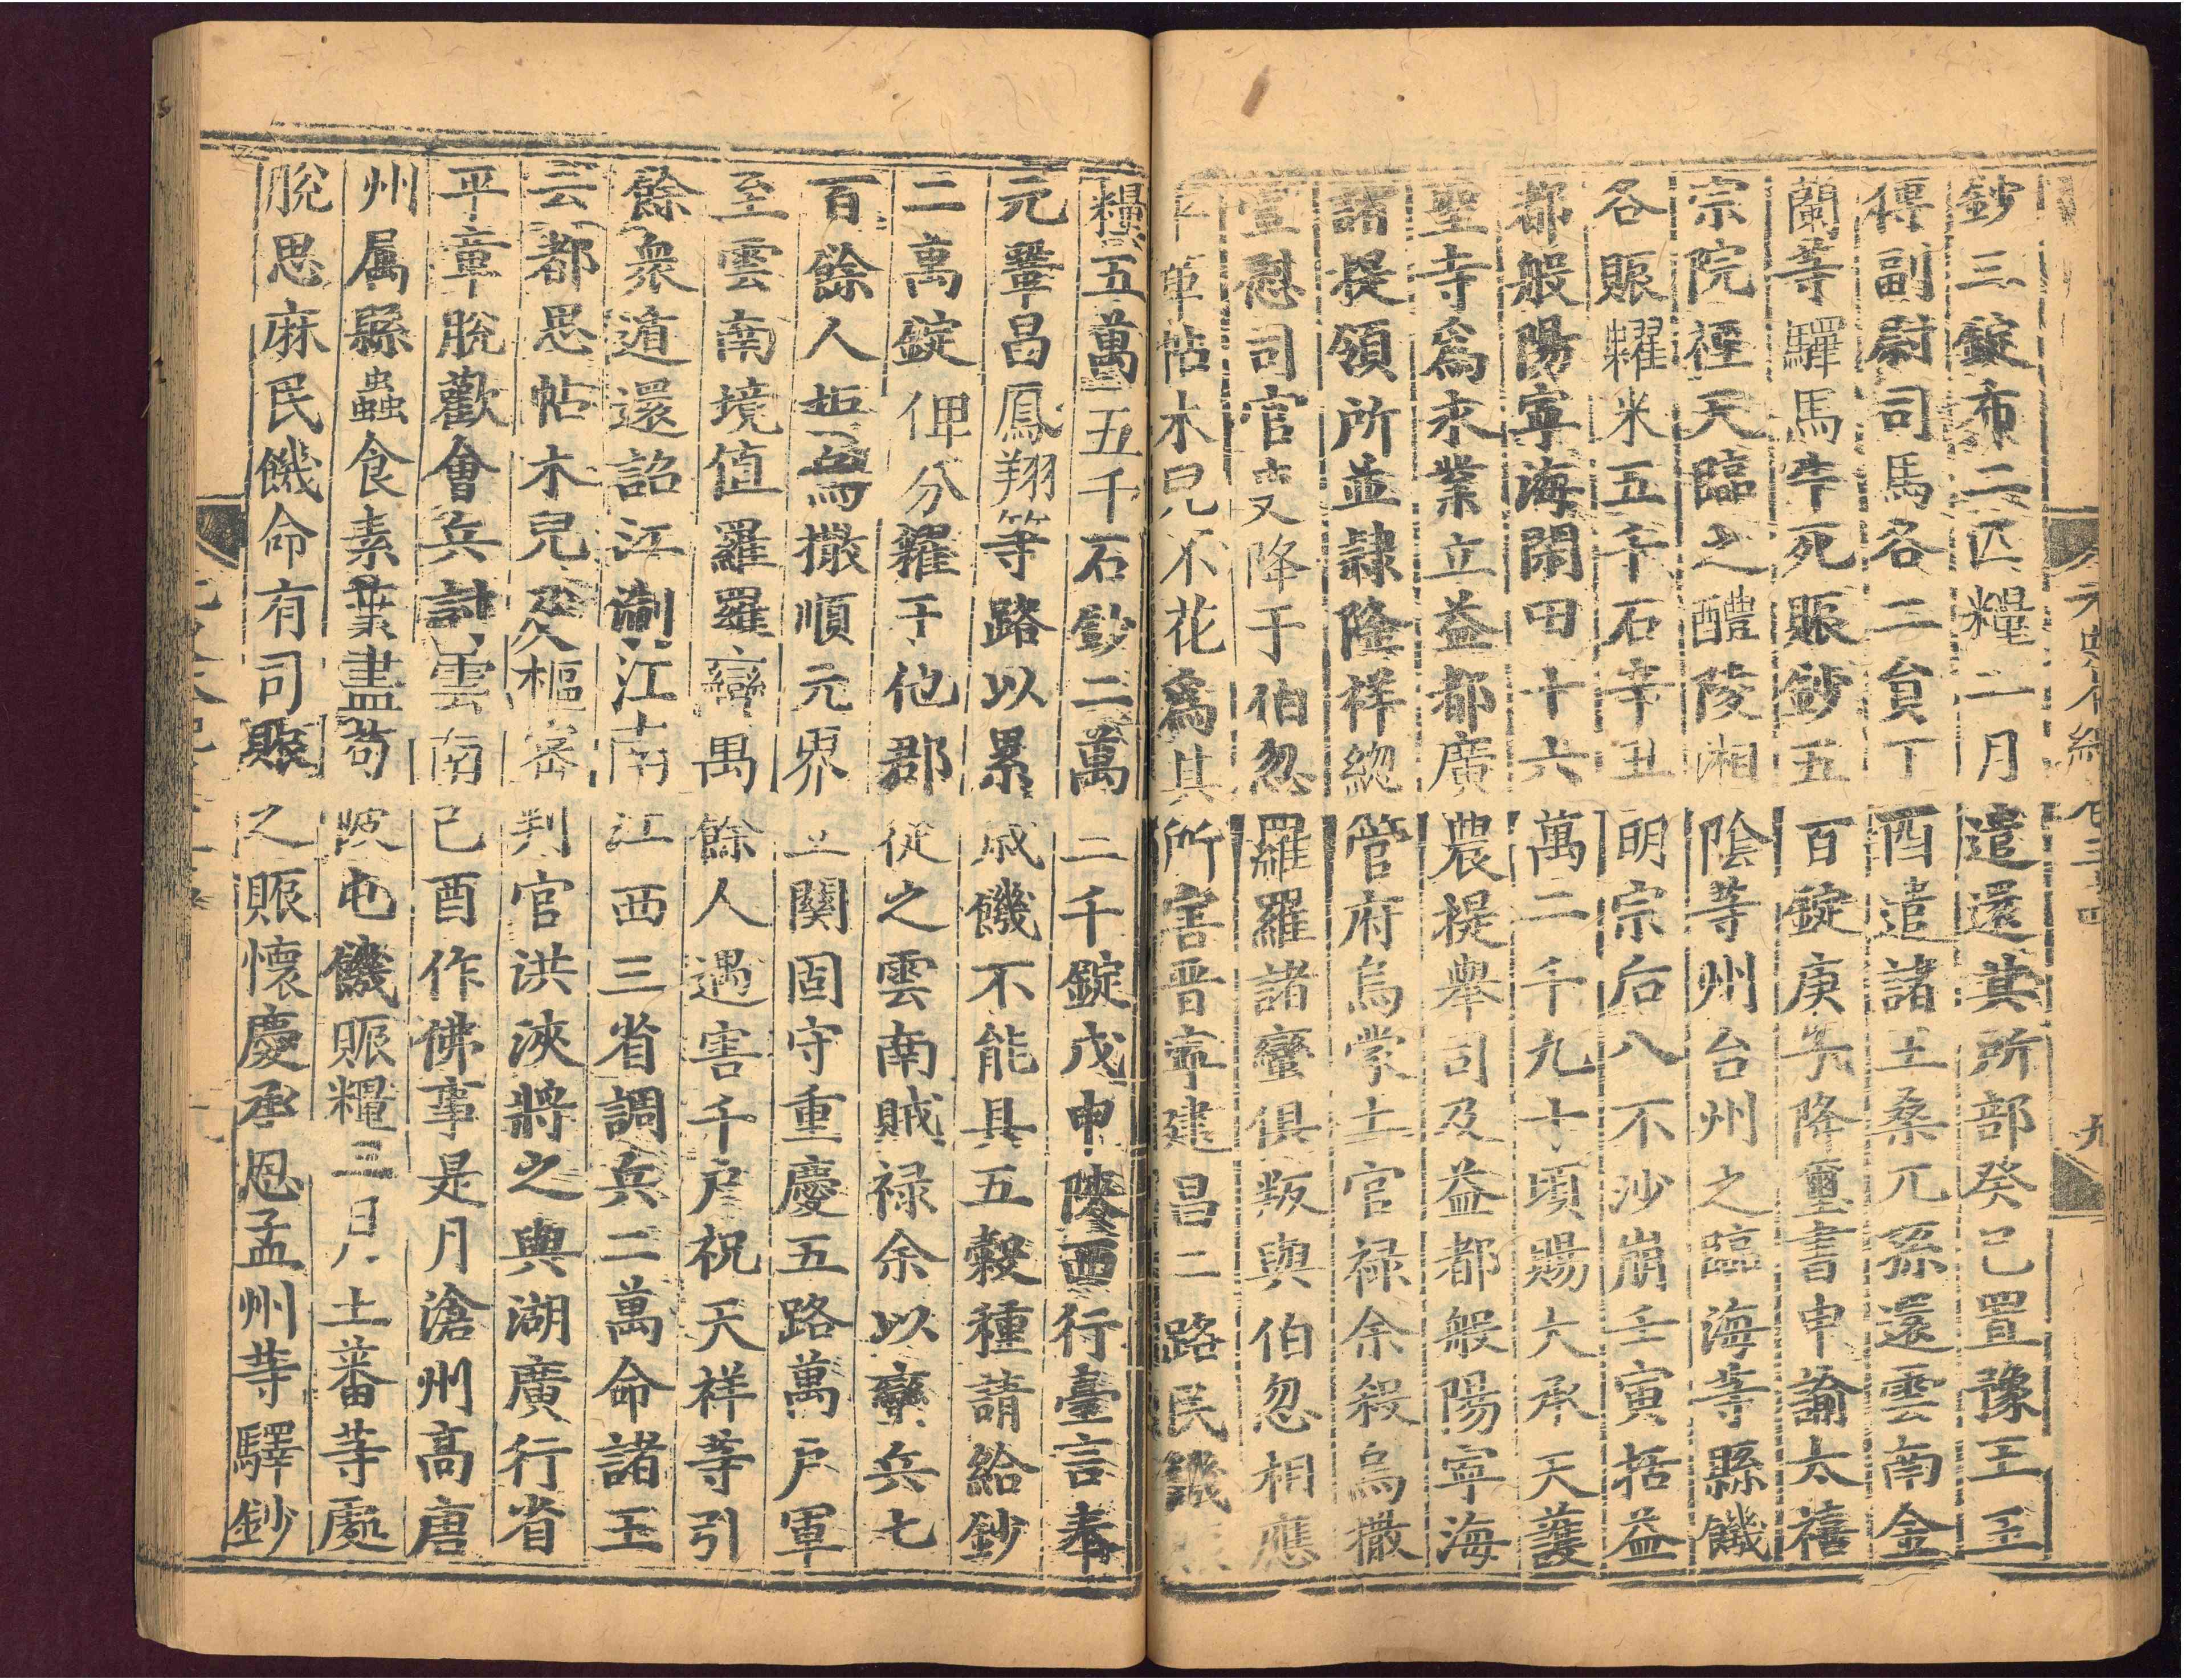 鈔三錠布二匹糧二月遣還其所部癸巳置豫王王
傅副尉司馬各二員丁酉遣諸王桑兀孫還雲南金
蘭等驛馬牛死賑鈔五百錠庚子降璽書申諭太禧
宗院徑天臨之醴陵湘陰等州台州之臨海等縣饑
各賑糶米五千石辛丑明宗后八不沙崩壬寅括益
都般陽寧海閑田十六萬二千九十頃賜大承天護
聖寺為永業立益都廣農提舉司及益都般陽寧海
諸提領所並隸隆祥總管府烏蒙土官祿余殺烏撒
宣慰司官吏降于伯忽羅羅諸蠻俱叛與伯忽相應
平章帖木兒不花為其所害晋寧建昌二路民饑
糧五萬五千石鈔二萬二千錠戊申陝西行臺言奉
元鞏昌鳳翔等路以累歲饑不能具五穀種請給鈔
二萬錠俾分糴于他郡從之雲南賊祿余以蠻兵七
百餘人拒烏撒順元界立關固守重慶五路萬戶軍
至雲南境值羅羅蠻萬餘人遇害千戶祝天祥等引
餘衆遁還詔江浙江南江西三省調兵二萬命諸王
云都思帖木兒及樞密判官洪浹將之與湖廣行省
平章脫歡會兵討雲南己酉作佛事是月滄州高唐
州属縣蟲食素葉盡芍陂屯饑賑糧三月土蕃等處
脫思麻民饑命有司賑之賑懷慶承恩孟州等驛鈔